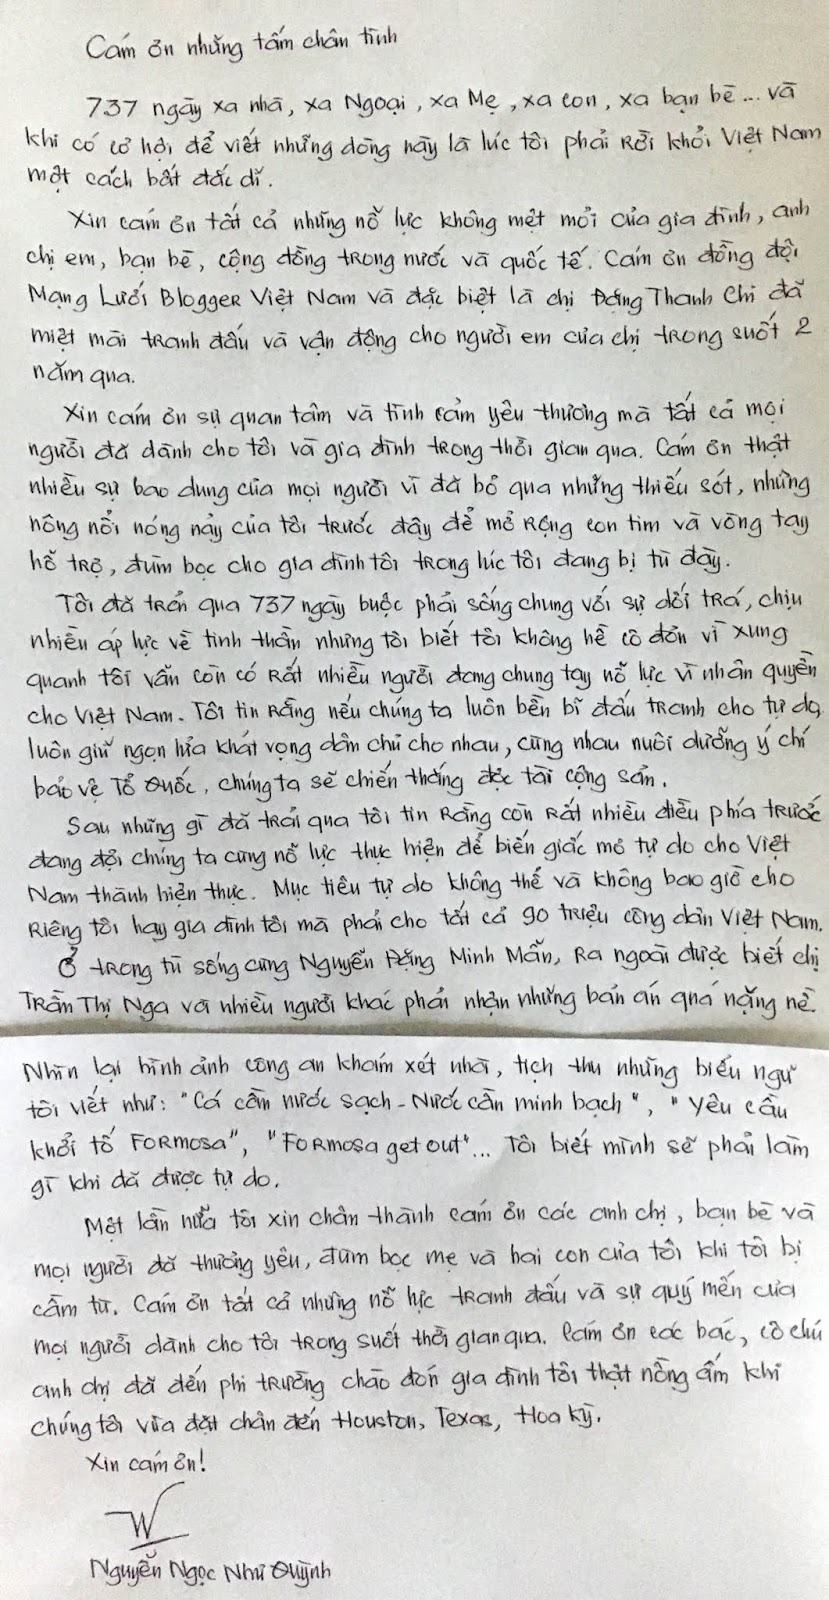 Cám ơn những tấm chân tình
737 ngày xa nhà, xa Ngoại, xa Mẹ, xa con, xa bạn bè... và
khi có cơ hội để viết những dòng này là lúc tôi phải rời khỏi Việt Nam
một cách bất đắc dĩ.
Xin cám ơn tất cả những nỗ lực không mệt mỏi của gia đình, anh
chị em, bạn bè, cộng đồng trong nước và quốc tế. Cám ơn đồng đội
Mạng Lưới Blogger Việt Nam và đặc biệt là chị Đặng Thanh Chi đã
miệt mài tranh đấu và vận động cho người em của chị trong suốt 2
năm qua.
Xin cám ơn sự quan tâm và tình cảm yêu thương mà tất cả mọi
người đã dành cho tôi và gia đình trong thời gian qua. Cám ơn thật
nhiều sự bao dung của mọi người vì đã bỏ qua những thiếu sót, những
nông nổi nóng nảy của tôi trước đây để mở rộng con tim và vòng tay
hỗ trợ, đùm bọc cho gia đình tôi trong lúc tôi đang bị tù đày.
Tôi đã trải qua 737 ngày buộc phải sống chung với sự dối trá, chịu
nhiều áp lực về tinh thần nhưng tôi biết tôi không hề cô đơn vì xung
quanh tôi vẫn còn có rất nhiều người đang chung tay nỗ lực vì nhân quyền
cho Việt Nam. Tôi tin rằng nếu chúng ta luôn bền bỉ đấu tranh cho tự do,
luôn giữ ngọn lửa khát vọng dân chủ cho nhau, cùng nhau nuôi dưỡng ý chí
bảo vệ Tổ Quốc, chúng ta sẽ chiến thắng độc tài cộng sản.
Sau những gì đã trải qua tôi tin rằng còn rất nhiều điều phía trước
đang đợi chúng ta cùng nỗ lực thực hiện để biến giấc mơ tự do cho Việt
Nam thành hiện thực. Mục tiêu tự do không thể và không bao giờ cho
riêng tôi hay gia đình tôi mà phải cho tất cả 90 triệu công dân Việt Nam.
Ở trong tù sống cùng Nguyễn Đặng Minh Mẫn, ra ngoài được biết chị
Trần Thị Nga và nhiều người khác phải nhận những bản án quá nặng nề.
Nhìn lại hình ảnh công an khám xét nhà, tịch thu những biểu ngữ
tôi viết như: "Cá cần nước sạch - Nước cần minh bạch", "Yêu cầu
khởi tố Formosa", "Formosa get out"... Tôi biết mình sẽ phải làm
gì khi đã được tự do.
Một lần nữa tôi xin chân thành cám ơn các anh chị, bạn bè và
mọi người đã thương yêu, đùm bọc mẹ và hai con của tôi khi tôi bị
cầm tù. Cám ơn tất cả những nỗ lực tranh đấu và sự quý mến của
mọi người dành cho tôi trong suốt thời gian qua. Cám ơn các bác, cô chú
anh chị đã đến phi trường chào đón gia đình tôi thật nồng ấm khi
chúng tôi vừa đặt chân đến Houston, Texas, Hoa Kỳ.
Xin cám ơn!
Nguyễn Ngọc Như Quỳnh